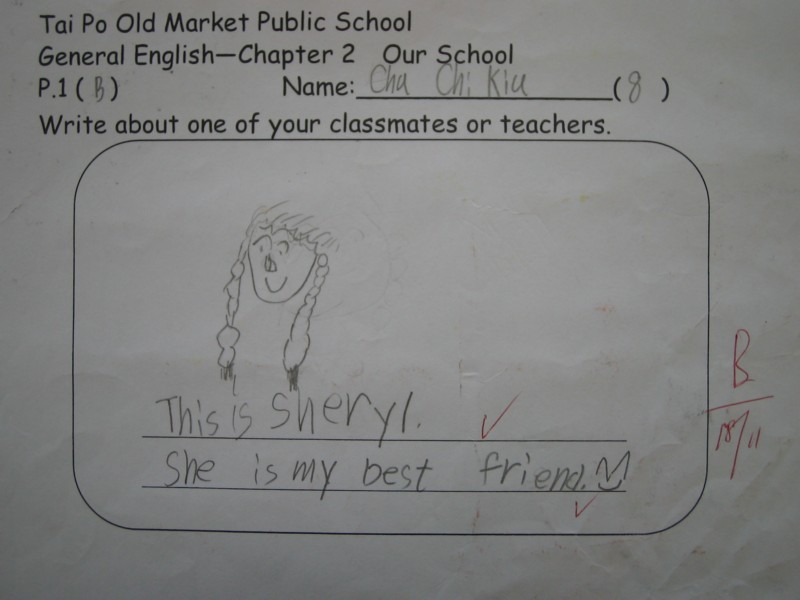 Tai Po Old Market Public School
General English—Chapter 2 Our School
P.1 ( B ) Name: Chu Chi Kiu ( 8 )
Write about one of your classmates or teachers.
This is Sheryl.
She is my best friend.
B
18/11